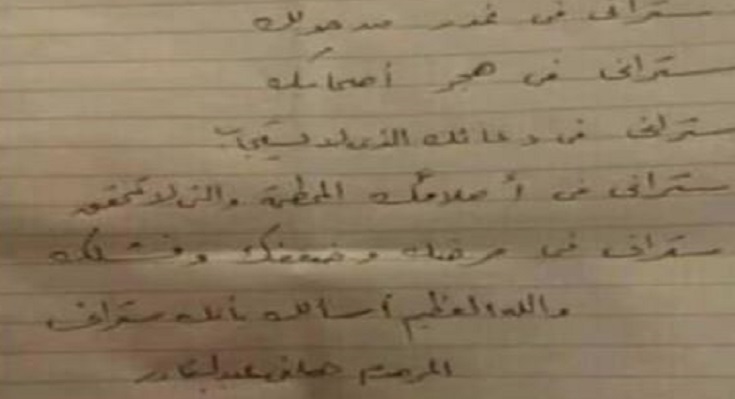 ستراني في غدر من حولك
ستراني في هجر أصحابك
ستراني في دعائك الذي لا يستجاب
ستراني في أحلامك المحطمة والتي لا تتحقق
ستراني في مرضك وضعفك وفشلك
والله العظيم أسألك بأنك ستراني
المرحوم عبدالقادر